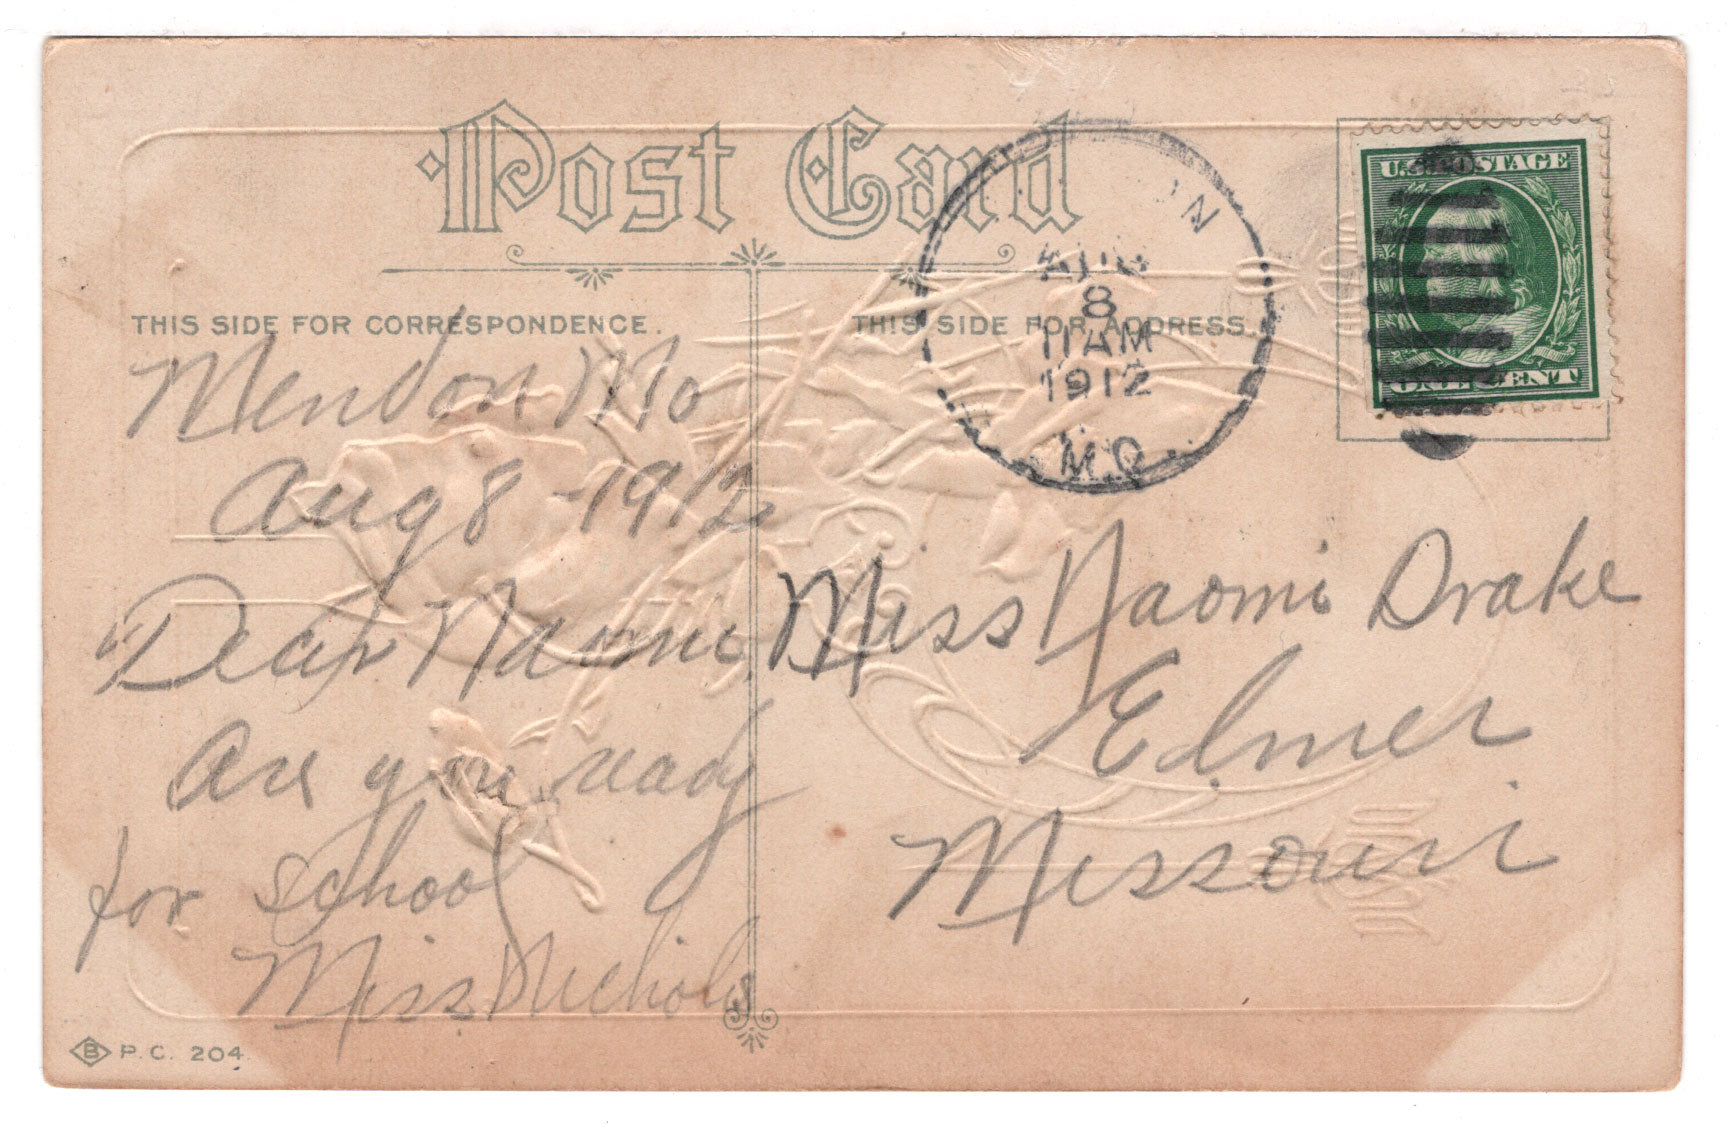 Post Card
THIS SIDE FOR CORRESPONDENCE.
THIS SIDE FOR ADDRESS.
Mendon Mo
Aug 8 - 1912
Dear Naomi,
Are you ready
for school
Miss Nichols
Miss Naomi Drake
Elmer
Missouri
AUG
8
11 AM
1912
MO.
U.S. POSTAGE
ONE CENT
B P.C. 204